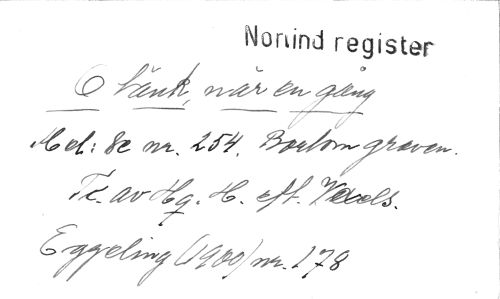 Norrind register
O tänk, när en gång
Mel: Se nr. 254. Bortom graven.
Tx. av Hg. H. eft. Wexels.
Eggeling (1900) nr. 178